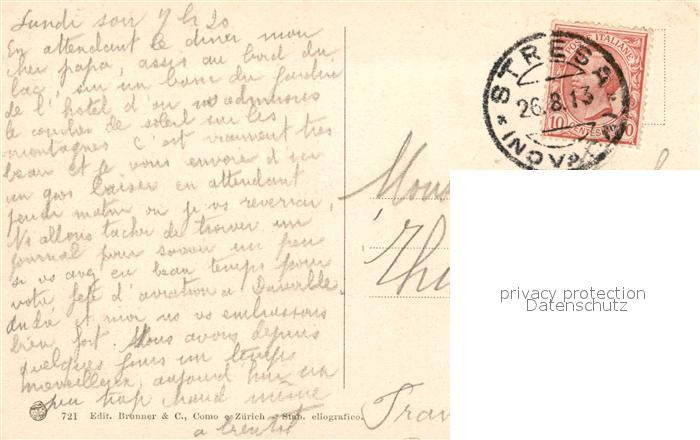 Lundi soir 7 h 20
En attendant le diner mon
cher papa, assis au bord du
lac, sur un banc du jardin
de l'hotel d'où ns admirons
le coucher de soleil sur les
montagnes c'est vraiment très
beau et je vous envoie d'ici
un gros baiser en attendant
jeudi matin où je vs reverrai,
Ns allons tacher de trouver un
journal pour savoir un peu
si vs avez eu beau temps pour
votre fête d'aviation a Deauville.
André et moi ns vs embrassons
bien fort. Nous avons depuis
quelques jours un temps
merveilleux, aujourd'hui un
peu trop chaud même
a bientot
721 Edit. Brunner & C., Como e Zürich - Stab. eliografico.
STRESA
26.8.13
POSTE ITALIANE
10 CENTESIMI 10
privacy protection
Datenschutz